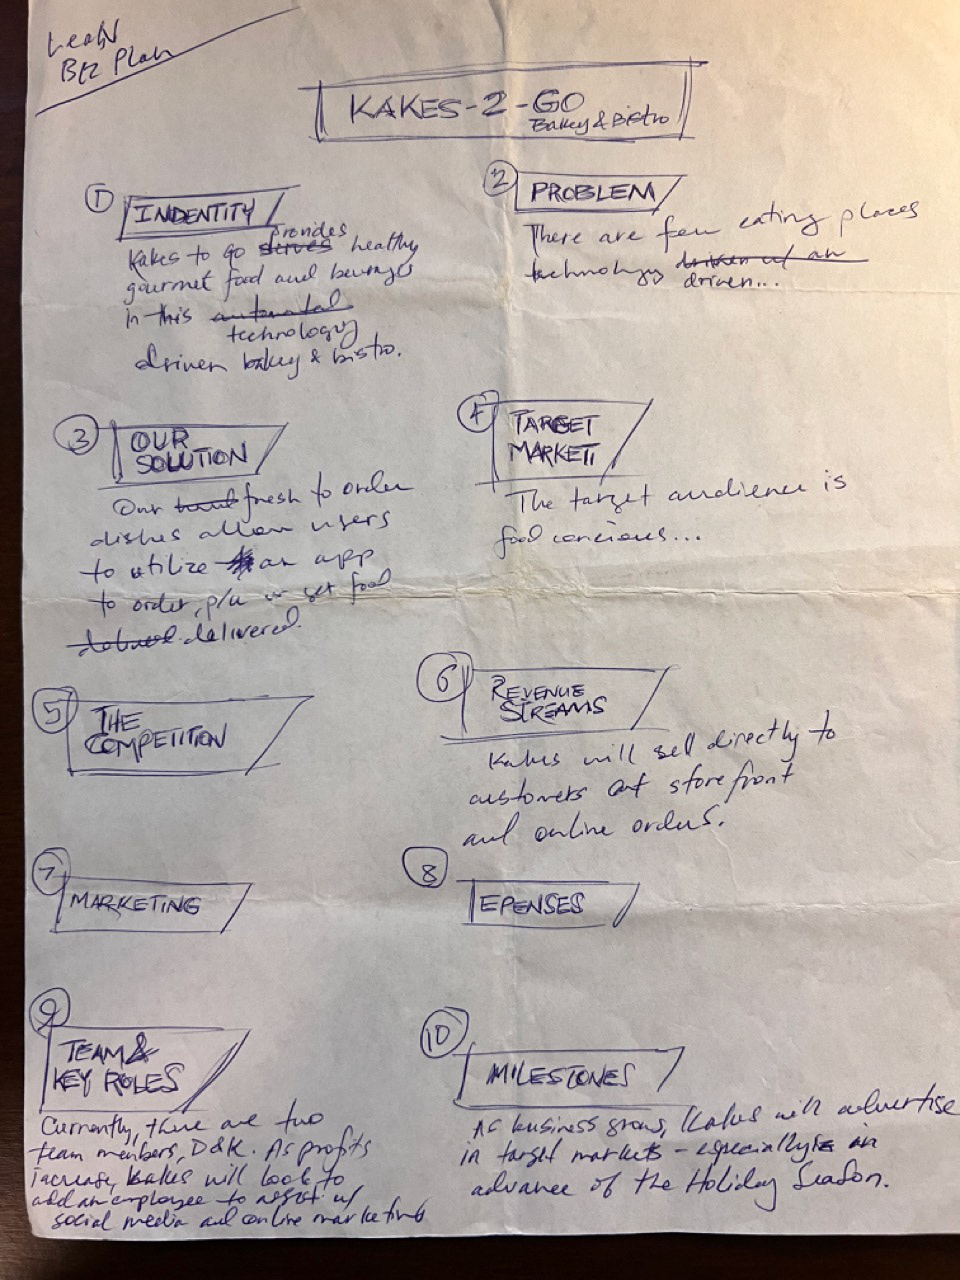 Lean
Biz Plan
KAKES-2-GO
Bakey & Bistro
1 INDENTITY
Kakes to Go serves provides healthy
gourmet food and beverages
in this automated
technology
driven bakey & bistro.
2 PROBLEM
There are few eating places
technology driven w/ an
driven...
3 OUR
SOLUTION
Our fresh to order
dishes allow users
to utilize an app
to order, p/u or get food
delivered.
4 TARGET
MARKET
The target audience is
food concious...
5 THE
COMPETITION
6 REVENUE
STREAMS
Kakes will sell directly to
customers at storefront
and online orders.
7 MARKETING
8 EPENSES
9 TEAM &
KEY ROLES
Currently, there are two
team members, D&K. As profits
increase, Kakes will look to
add an employee to assist w/
social media and online marketing
10 MILESTONES
As business grows, Kakes will advertise
in target markets - especially in
advance of the Holiday Season.